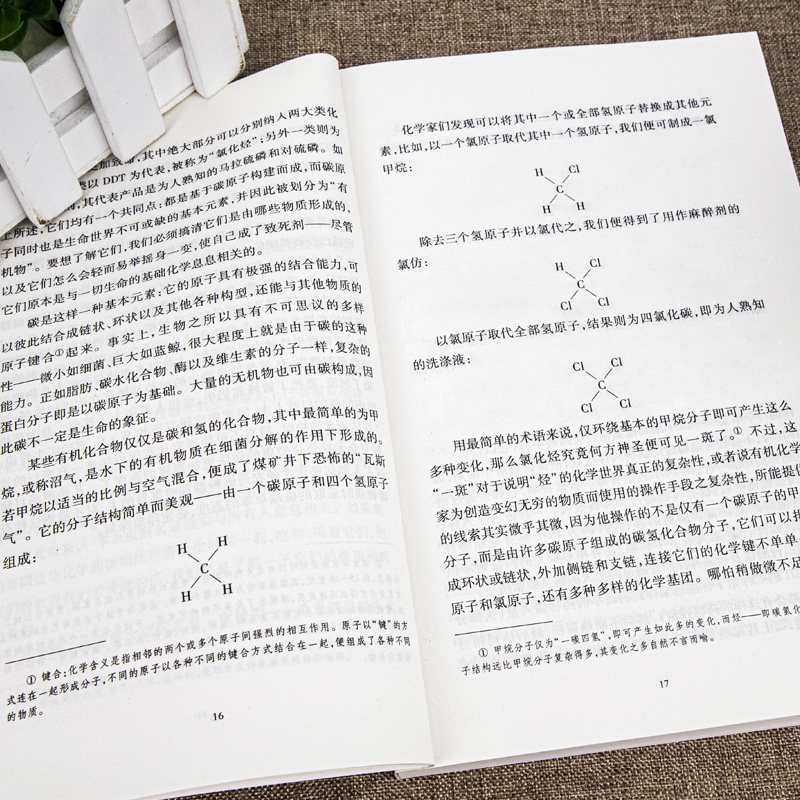 加致命,其中绝大部分可以分别纳入两大类化
类以 DDT 为代表,被称为“氯化烃”;另外一类则为
其代表产品是为人熟知的马拉硫磷和对硫磷。如
上所述,它们均有一个共同点:都是基于碳原子构建而成,而碳原
子同时也是生命世界不可或缺的基本元素,并因此被划分为“有
机物”。要想了解它们,我们必须搞清它们是由哪些物质形成的,
以及它们怎么会轻而易举摇身一变,使自己成了致死剂——尽管
它们原本是与一切生命的基础化学息息相关的。
碳是这样一种基本元素:它的原子具有极强的结合能力,可
以彼此结合成链状、环状以及其他各种构型,还能与其他物质的
原子键合①起来。事实上,生物之所以具有不可思议的多样
性——微小如细菌、巨大如蓝鲸,很大程度上就是由于碳的这种
能力。正如脂肪、碳水化合物、酶以及维生素的分子一样,复杂的
蛋白分子即是以碳原子为基础。大量的无机物也可由碳构成,因
此碳不一定是生命的象征。
某些有机化合物仅仅是碳和氢的化合物,其中最简单的为甲
烷,或称沼气,是水下的有机物质在细菌分解的作用下形成的。
若甲烷以适当的比例与空气混合,便成了煤矿井下恐怖的“瓦斯
气”。它的分子结构简单而美观——由一个碳原子和四个氢原子
组成:
H H
C
H H
① 键合:化学含义是指相邻的两个或多个原子间强烈的相互作用。原子以“键”的方
式连在一起形成分子,不同的原子以各种不同的键合方式结合在一起,便组成了各种不同
的物质。
16
化学家们发现可以将其中一个或全部氢原子替换成其他元
素,比如,以一个氯原子取代其中一个氢原子,我们便可制成一氯
甲烷:
H Cl
C
H H
除去三个氢原子并以氯代之,我们便得到了用作麻醉剂的
氯仿:
H Cl
C
Cl Cl
以氯原子取代全部氢原子,结果则为四氯化碳,即为人熟知
的洗涤液:
Cl Cl
C
Cl Cl
用最简单的术语来说,仅环绕基本的甲烷分子即可产生这么
多种变化,那么氯化烃究竟何方神圣便可见一斑了。① 不过,这
“一斑”对于说明“烃”的化学世界真正的复杂性,或者说有机化学
家为创造变幻无穷的物质而使用的操作手段之复杂性,所能提供
的线索其实微乎其微,因为他操作的不是仅有一个碳原子的甲
分子,而是由许多碳原子组成的碳氢化合物分子,它们可以
成环状或链状,外加侧链和支链,连接它们的化学键不单单
原子和氯原子,还有多种多样的化学基团。哪怕稍做微不足
① 甲烷分子仅为“一碳四氢”,即可产生如此多的变化,而烃——即碳氢化
子结构远比甲烷分子复杂得多,其变化之多自然不言而喻。
17